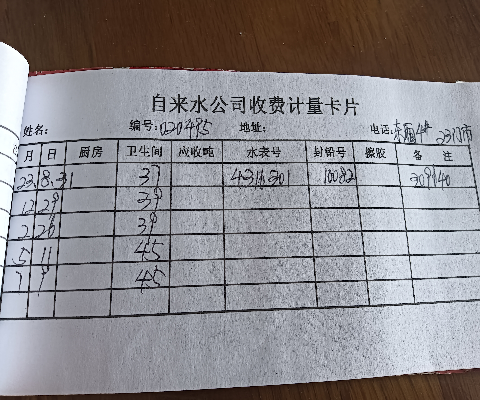 自来水公司收费计量卡片
姓名: 编号: 020495 地址: 电话: 东厢4# 23门市
月 日 厨房 卫生间 应收吨 水表号 封铅号 擦胶 备注
23.8.31 37 4311630 10082 309140
12 29 39
2 26 39
5 11 45
7 9 45